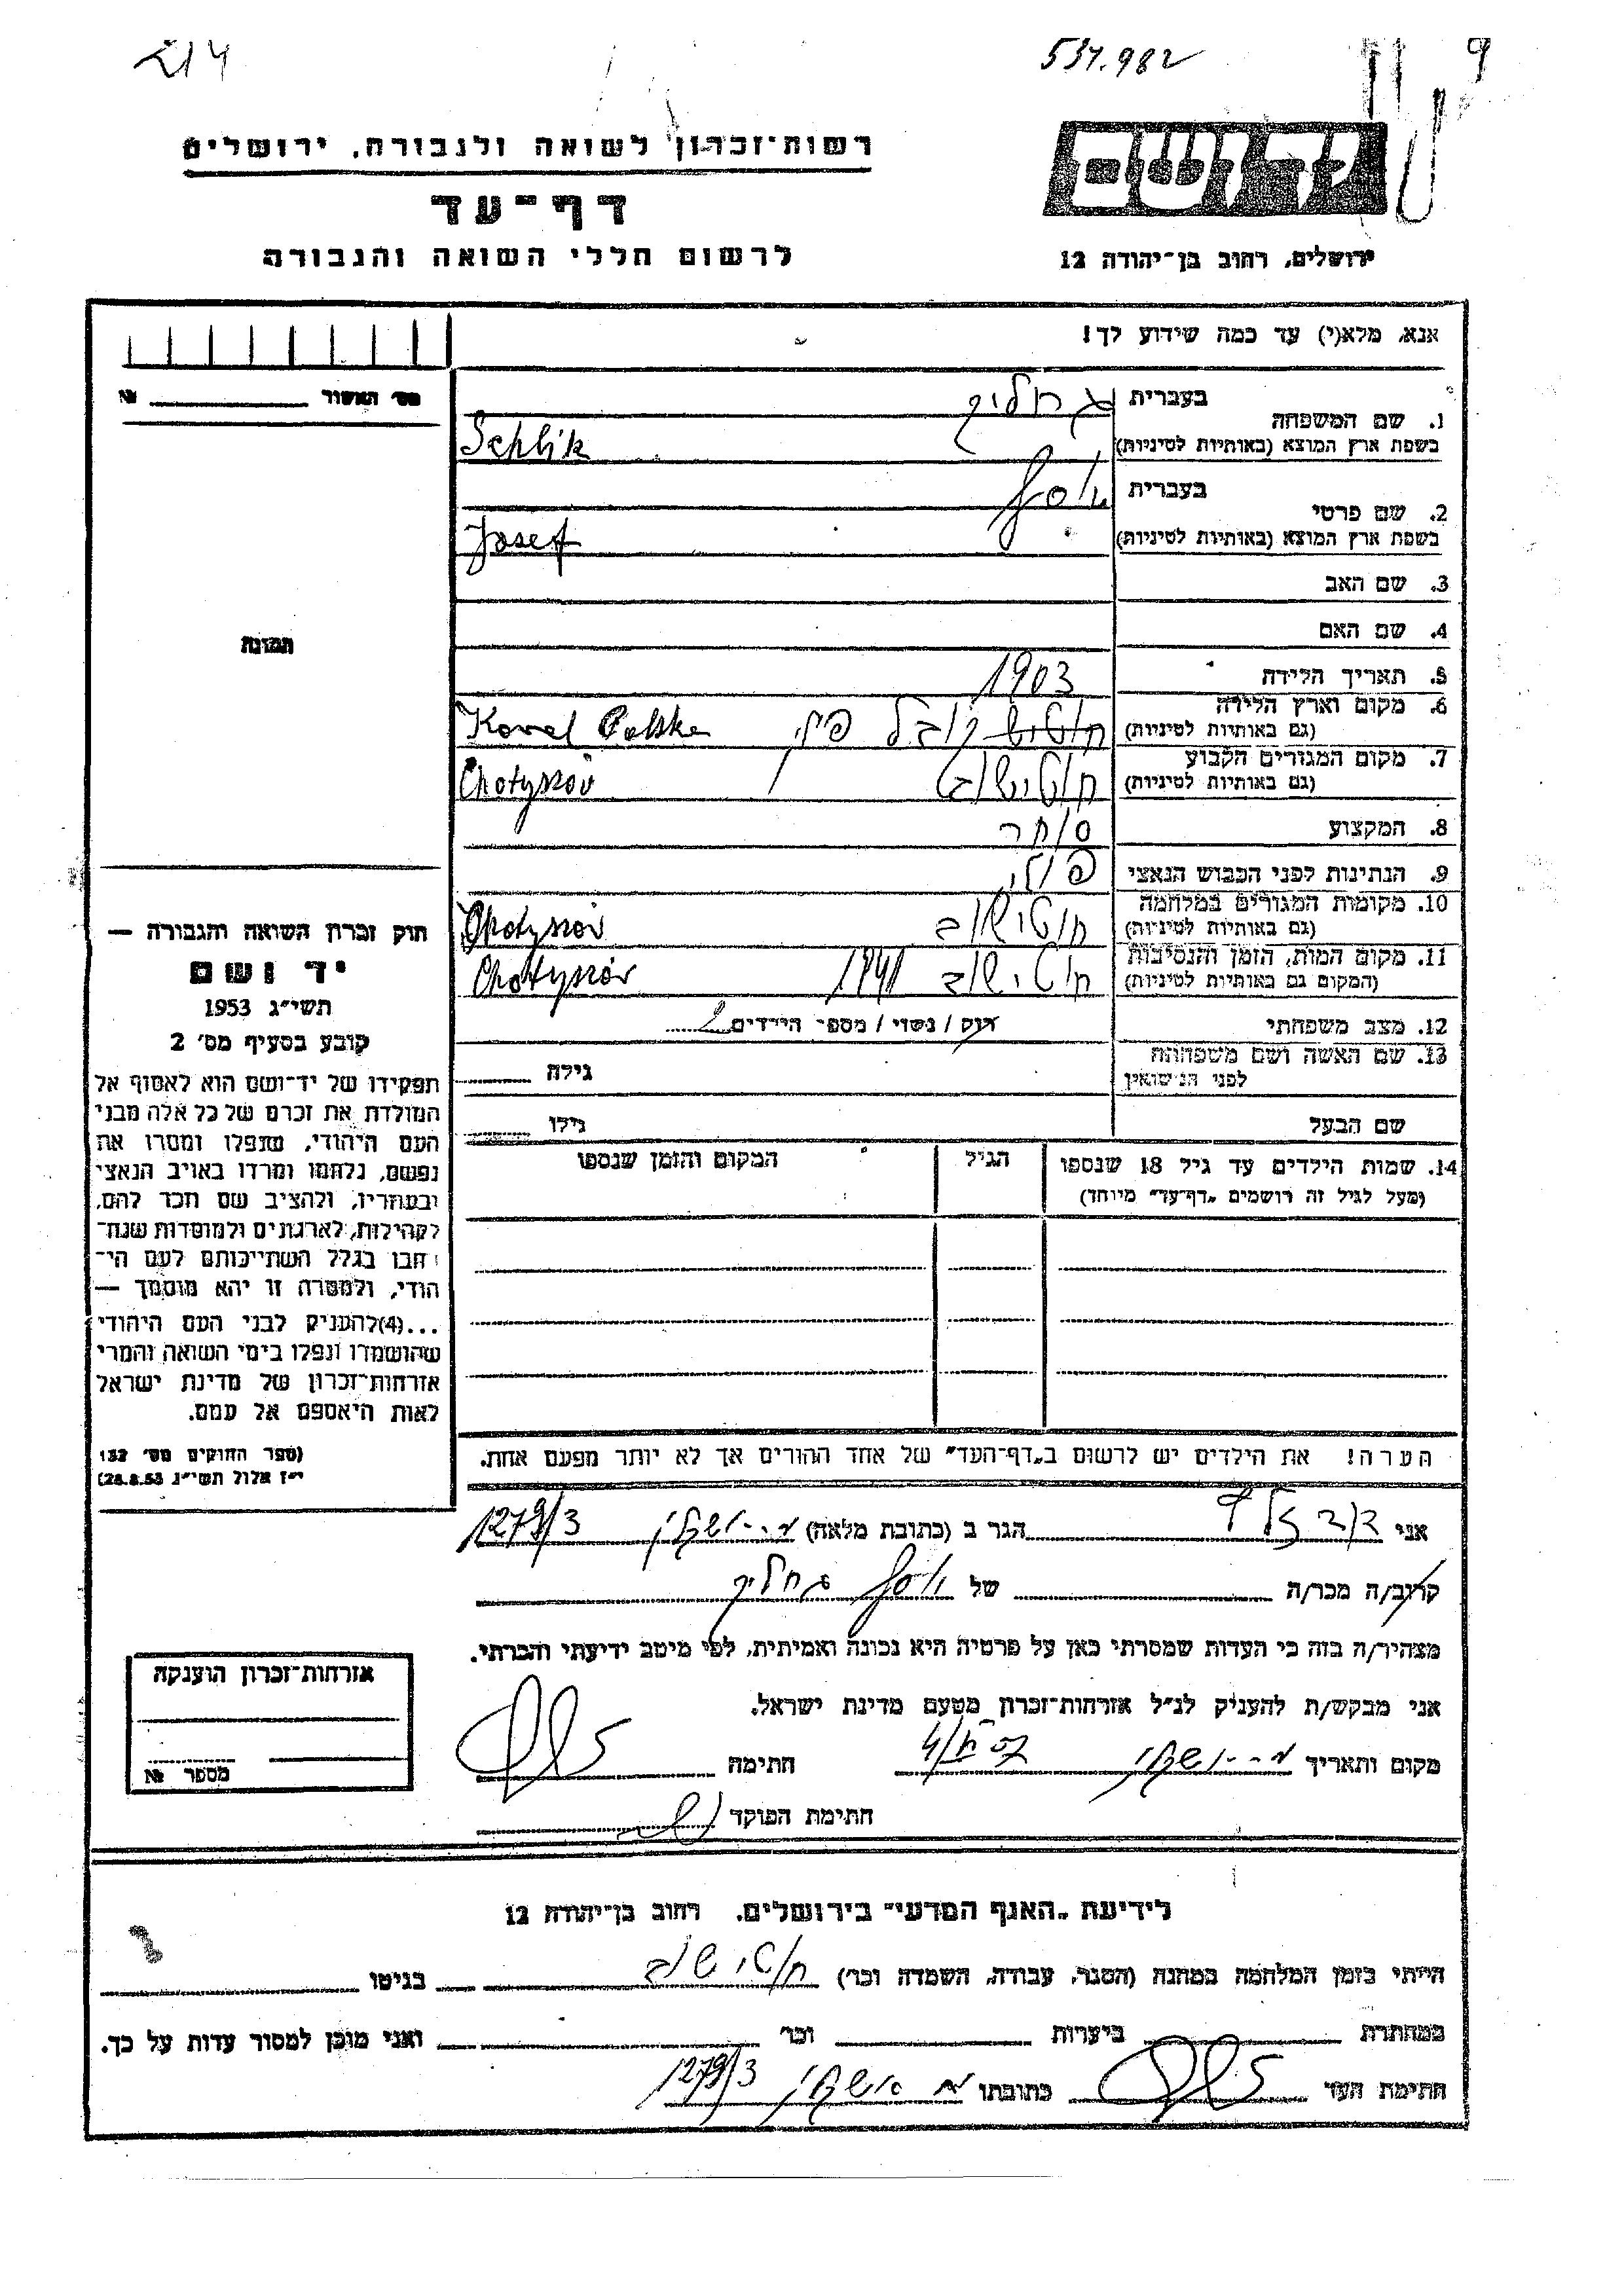 214
534.982
9
רשות־זכרון לשואה ולגבורה, ירושלים
דף־עד
לרשום חללי השואה והגבורה
יד ושם
ירושלים, רחוב בן־יהודה 12
אנא, מלא(י) עד כמה שידוע לך!
מס׳ האשור № 
1. שם המשפחה
בעברית
בשפת ארץ המוצא (באותיות לטיניות) Sehlik
2. שם פרטי
בעברית יוסף
בשפת ארץ המוצא (באותיות לטיניות) Josef
3. שם האב
4. שם האם
5. תאריך הלידה 1903
6. מקום וארץ הלידה
(גם באותיות לטיניות) קובל פולין Kovel Polska
7. מקום המגורים הקבוע
(גם באותיות לטיניות) חוטישוב Chotyszov
8. המקצוע סוחר
9. הנתינות לפני הכבוש הנאצי פולני
10. מקומות המגורים במלחמה
(גם באותיות לטיניות) חוטישוב Chotyszov
11. מקום המות, הזמן והנסיבות
(המקום גם באותיות לטיניות) חוטישוב 1941 Chotyszóv
12. מצב משפחתי רוק / נשוי / מספר הילדים
13. שם האשה ושם משפחתה
לפני הנישואין
גילה
שם הבעל גילו
14. שמות הילדים עד גיל 18 שנספו
(מעל לגיל זה רושמים „דף־עד״ מיוחד)
הגיל
המקום והזמן שנספו
הערה! את הילדים יש לרשום ב„דף־העד״ של אחד ההורים אך לא יותר מפעם אחת.
תמונה
חוק זכרון השואה והגבורה —
יד ושם
תשי״ג 1953
קובע בסעיף מס׳ 2
תפקידו של יד־ושם הוא לאסוף אל
המולדת את זכרם של כל אלה מבני
העם היהודי, שנפלו ומסרו את
נפשם, נלחמו ומרדו באויב הנאצי
ובעוזריו, ולהציב שם וזכר להם,
לקהילות, לארגונים ולמוסדות שנח־
רבו בגלל השתייכותם לעם הי־
הודי, ולמטרה זו יהא מוסמך —
...(4)להעניק לבני העם היהודי
שהושמדו ונפלו בימי השואה והמרי
אזרחות־זכרון של מדינת ישראל
לאות היאספם אל עמם.
(ספר החוקים מס׳ 132
י״ז אלול תשי״ג 28.8.53)
אני הגר ב (כתובת מלאה) 1279/3
קרוב/ה מכר/ה של יוסף
מצהיר/ה בזה כי העדות שמסרתי כאן על פרטיה היא נכונה ואמיתית, לפי מיטב ידיעתי והכרתי.
אני מבקש/ת להעניק לנ״ל אזרחות־זכרון מטעם מדינת ישראל.
מקום ותאריך חתימה
חתימת הפוקד
אזרחות־זכרון הוענקה
מספר №
לידיעת „האגף המדעי״ בירושלים, רחוב בן־יהודה 12
הייתי בזמן המלחמה במחנה (הסגר, עבודה, השמדה וכו׳) חוטישוב בגיטו
במחתרת ביערות וכו׳ ואני מוכן למסור עדות על כך.
חתימת העד כתובתו 1279/3